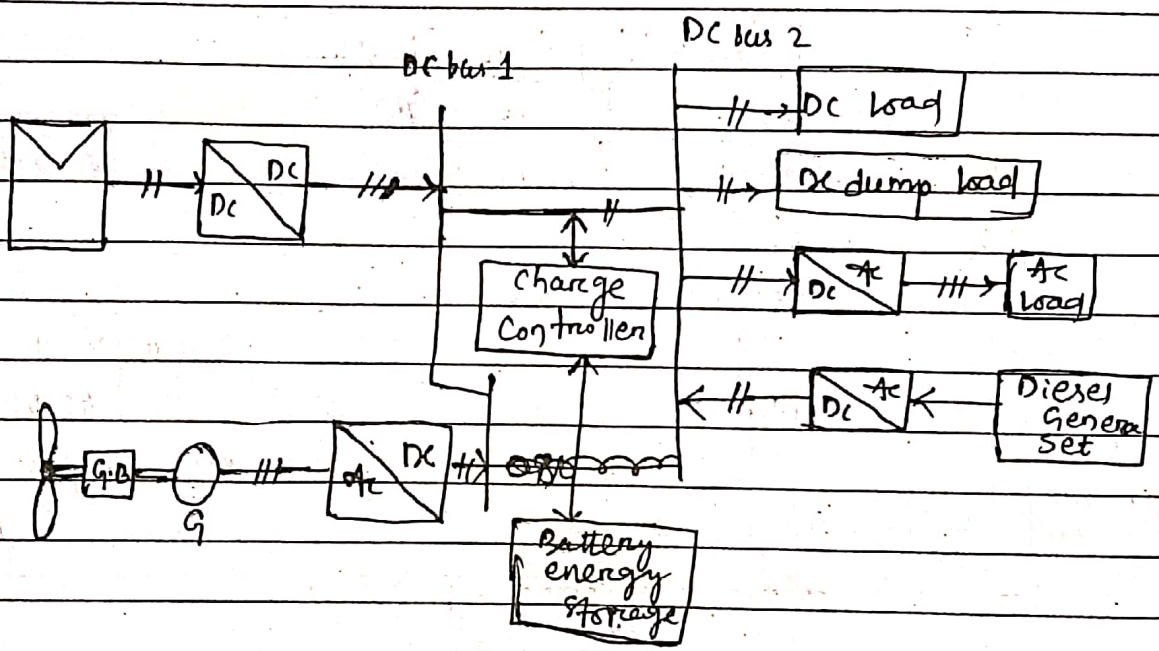 DC bus 2
DC bus 1
DC Load
DC
DC
DC dump load
Charge
Controller
AC
DC
AC
Load
AC
DC
Diesel
Genera
Set
G.B
G
DC
AC
Battery
energy
Storage